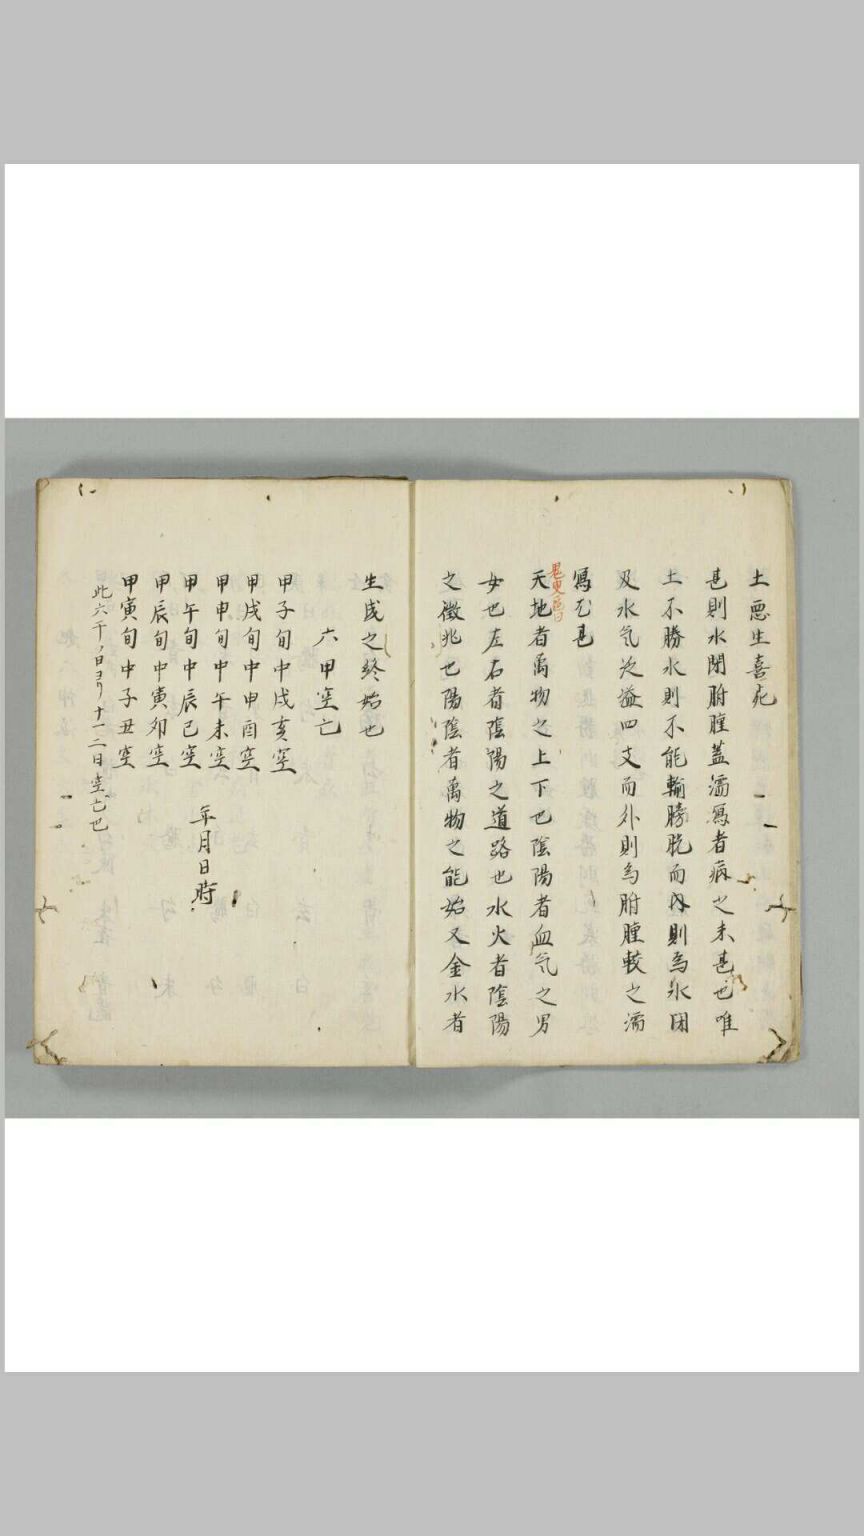 土悪生喜死
甚則水閉胕腫蓋濡寫者病之未甚也唯
土不勝水則不能輸膀胱而内則為水困
及水气泛溢四支而外則為胕腫較之濡
寫尤甚
天地者萬物之上下也陰陽者血气之男
女也左右者陰陽之道路也水火者陰陽
之徴兆也陽陰者萬物之能始又金水者
生成之終始也
六甲空亡
甲子旬中戌亥空
甲戌旬中申酉空
甲申旬中午未空
甲午旬中辰巳空
甲辰旬中寅卯空
甲寅旬中子丑空
年月日時
此六千ノ日ヨリ十一二日空亡也